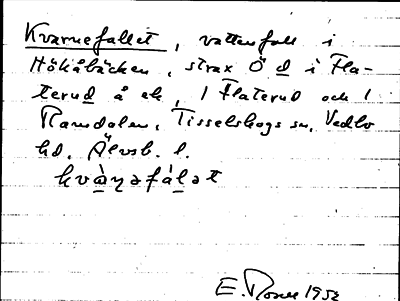 Kvarnefallet, vattenfall i
Hökåbäcken, strax Ö d i Fla-
terud å ek, 1 Flaterud och 1
Ramdalen, Tisselskogs sn, Vedbo
hd, Älvsb. l.
kvàṇəfálət
E. Rosell 1952